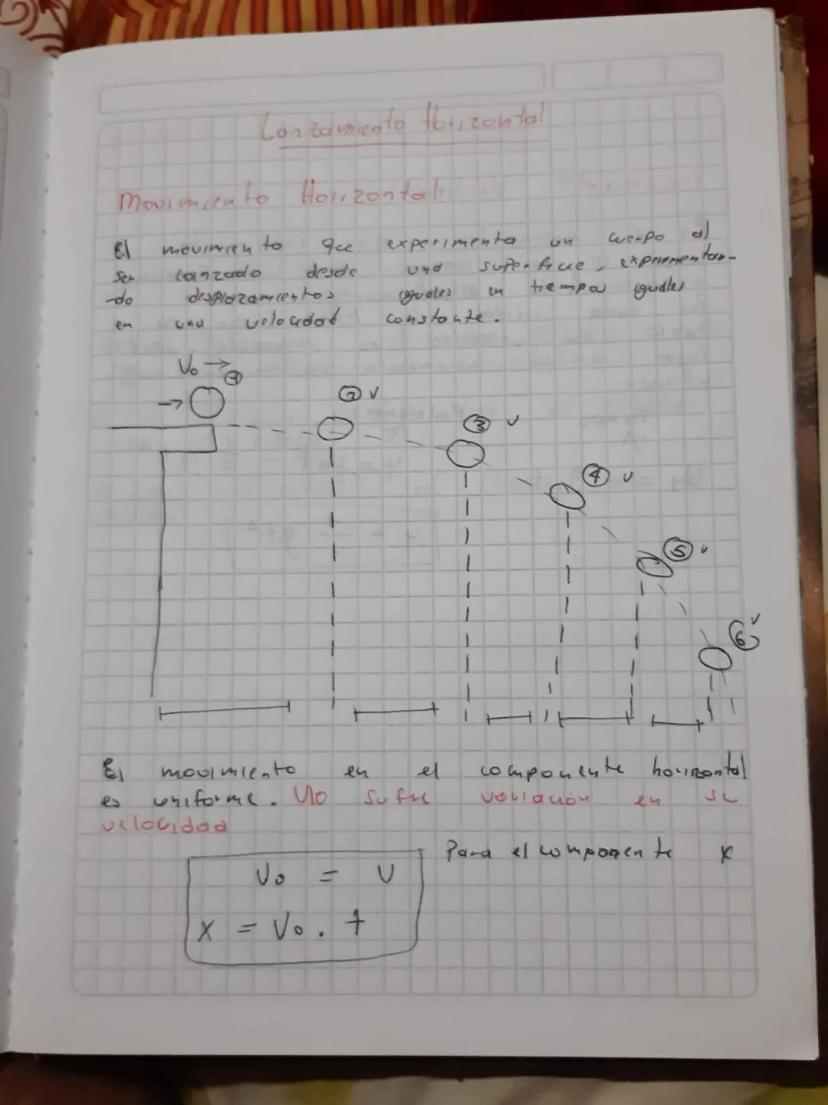 Lanzamiento Horizontal
Movimiento Horizontal:
El movimiento que experimenta un cuerpo al
ser lanzado desde una superficie, experimentan-
-do desplazamientos iguales en tiempos iguales
en una velocidad constante.
V₀ → ①
→
② v
③ v
④ v
⑤ v
⑥ v
El movimiento en el componente horizontal
es uniforme. No sufre variación en su
velocidad
Para el componente x
V₀ = v
x = V₀ . t